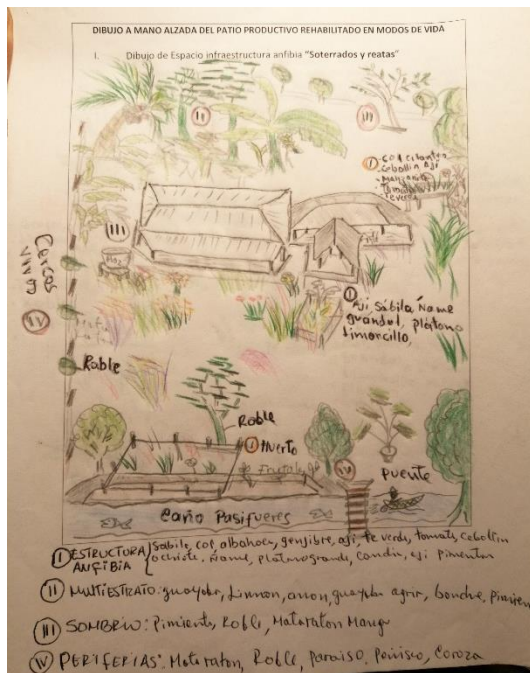 DIBUJO A MANO ALZADA DEL PATIO PRODUCTIVO REHABILITADO EN MODOS DE VIDA
I. Dibujo de Espacio infraestructura anfibia "Soterrados y reatas"
II
I
Col cilantro
Cebollin Ají
III
Cercos
vivos
IV
I
Ají, Sábila, Ñame
guandul, plátano
limoncillo,
Roble
Roble
I Huerto
Frutales
IV
Puente
Caño Pasifueres
I ESTRUCTURA ANFIBIA
Sabila, col, albahaca, gengibre, ají, te verde, tomate, Cebollin
achiote, ñame, platano grande, ají pimenton
II MULTIESTRATO: guayaba, Limon, anon, guayaba agria, bonche,
III SOMBRIO: Pimiento, Roble, Mataraton Mango
IV PERIFERIAS: Mataraton, Roble, Paraiso, Coroza